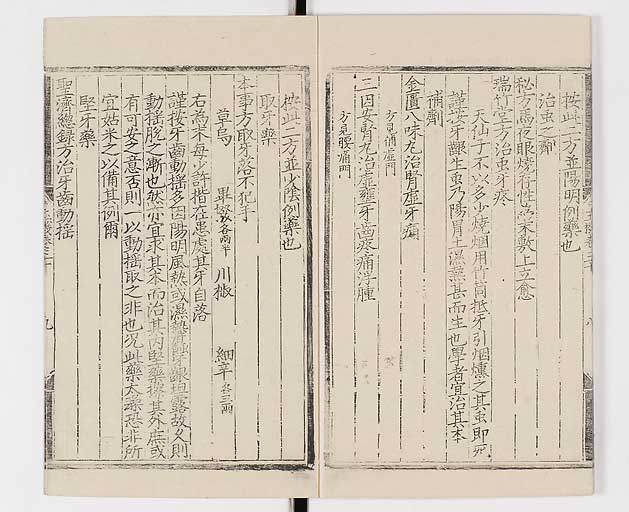 按此二方並陽明例藥也
治虫之劑
秘方馬夜眼燒存性為末敷上立愈
瑞竹堂方治虫牙疼
天仙子不以多少燒烟用竹筒抵牙引烟燻之其虫即死
謹按牙齦生虫乃陽胃土濕熱甚而生也學者宜治其本
補劑
金匱八味丸治腎虛牙痛
方見補虛門
三因安腎丸治虛壅牙齒疼痛浮腫
方見腰痛門
按此二方並少陰例藥也
取牙藥
本事方取牙落不犯手
草烏 蓽茇各兩半 川椒 細辛各三兩
右為末每少許揩在患處其牙自落
謹按牙齒動揺多因陽明風熱或濕熱
動揺脫之漸也然亦宜求其本而治其内堅藥擦其外庶或
有可安多意否則一以動揺取之非也况此藥太毒恐非所
宜姑采之以備其例爾
堅牙藥
聖濟總録方治牙齒動揺